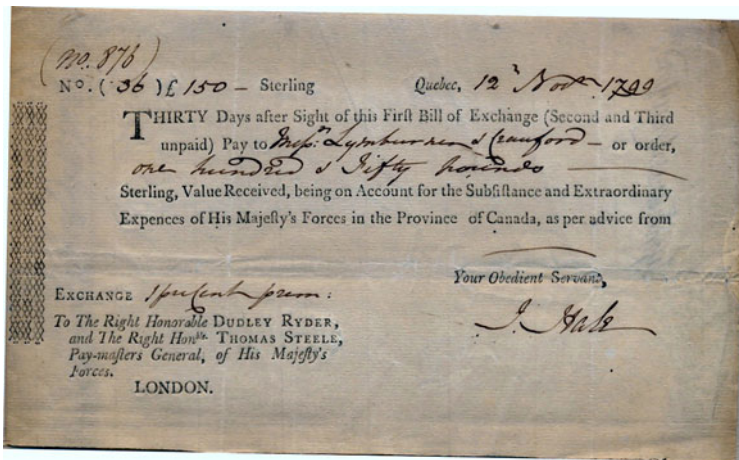 (No. 876)
No. (36) £ 150 – Sterling Quebec, 12 Novr 1799
THIRTY Days after Sight of this First Bill of Exchange (Second and Third
unpaid) Pay to Messrs. Lymburner & Craufurd – or order,
one hundred & Fifty pounds
Sterling, Value Received, being on Account for the Subſiſtance and Extraordinary
Expences of His Majeſty's Forces in the Province of Canada, as per advice from
Your Obedient Servant,
EXCHANGE 1 per Cent prem:
J. Hale
To The Right Honorable DUDLEY RYDER,
and The Right Honble. THOMAS STEELE,
Pay-maſters General, of His Majeſty's
Forces.
LONDON.